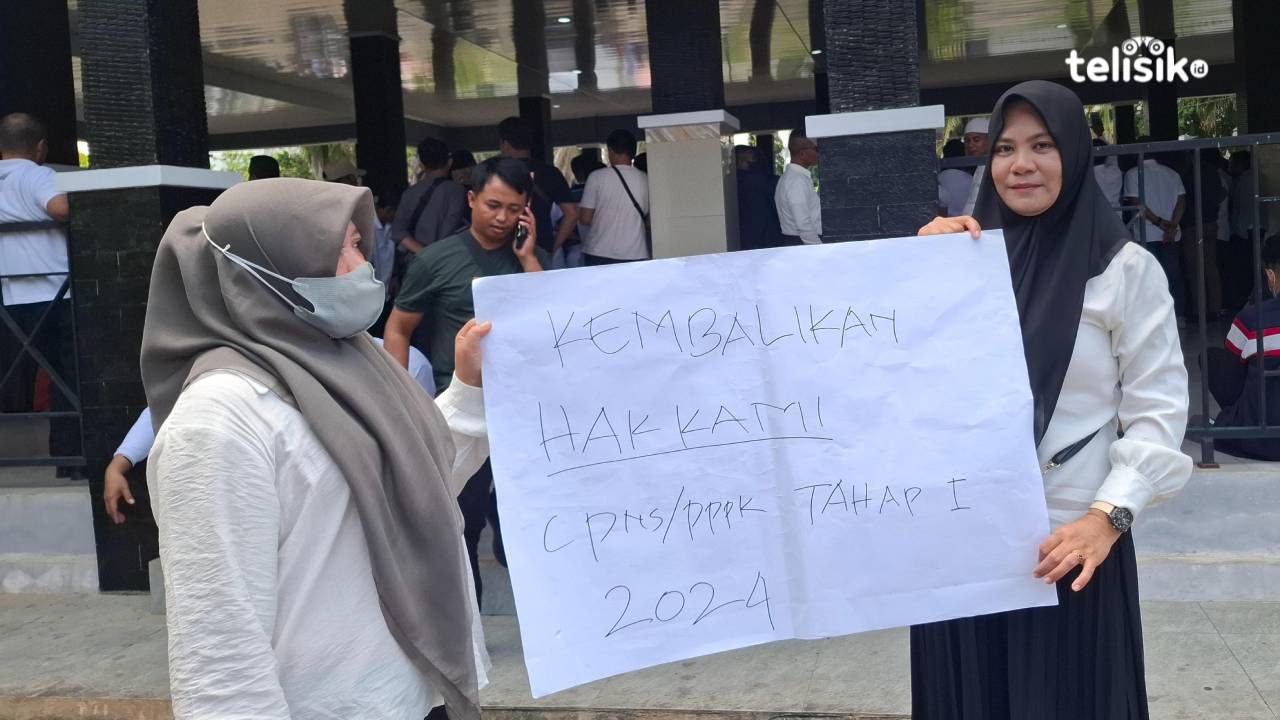 telisik id
KEMBALIKAN
HAK KAMI
CPNS/PPPK TAHAP I
2024